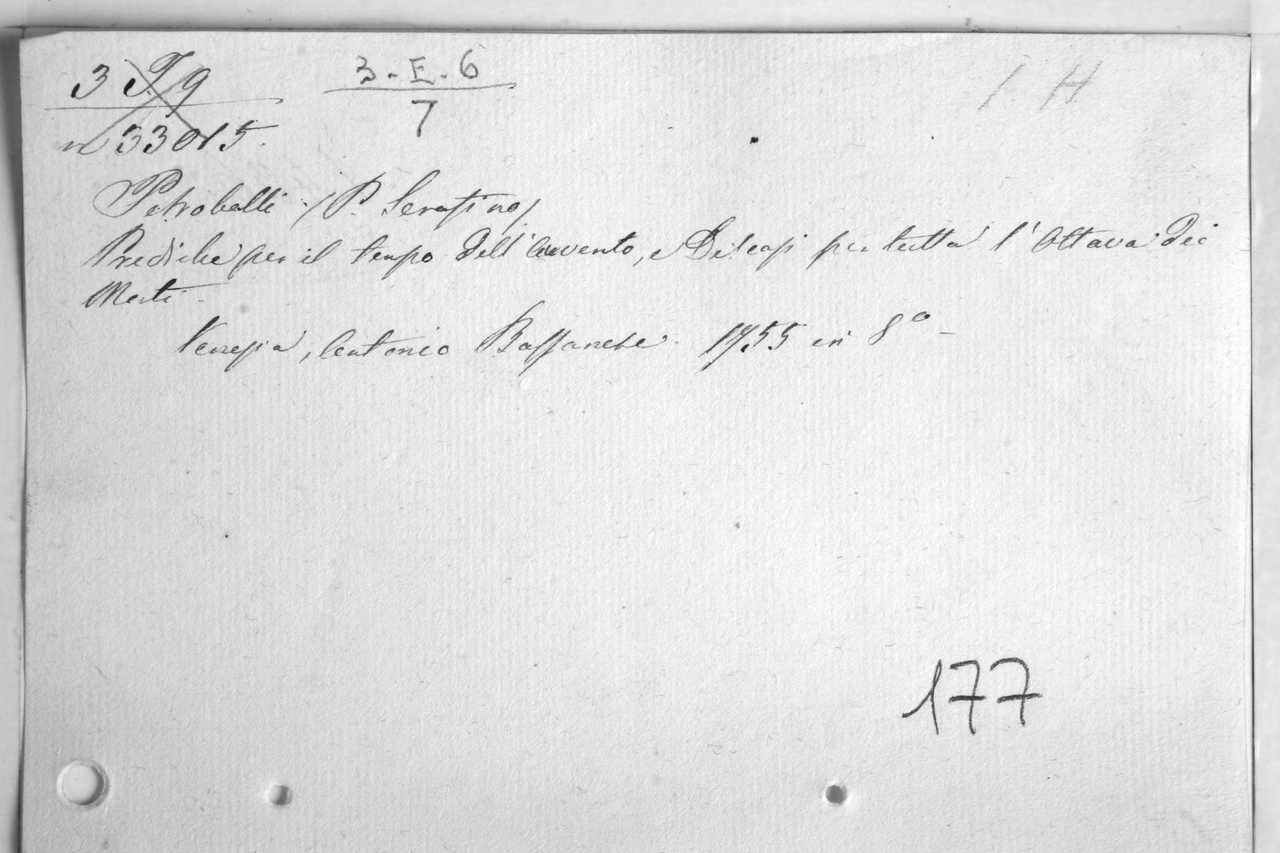 3 T. 9
3-E-6
7
1 H
n 33015.
Petrobelli (P. Serafino)
Prediche per il tempo dell'avvento, e per tutta l'Ottava dei
Morti.
Venezia, Antonio Bassanese. 1755 in 8°-
177